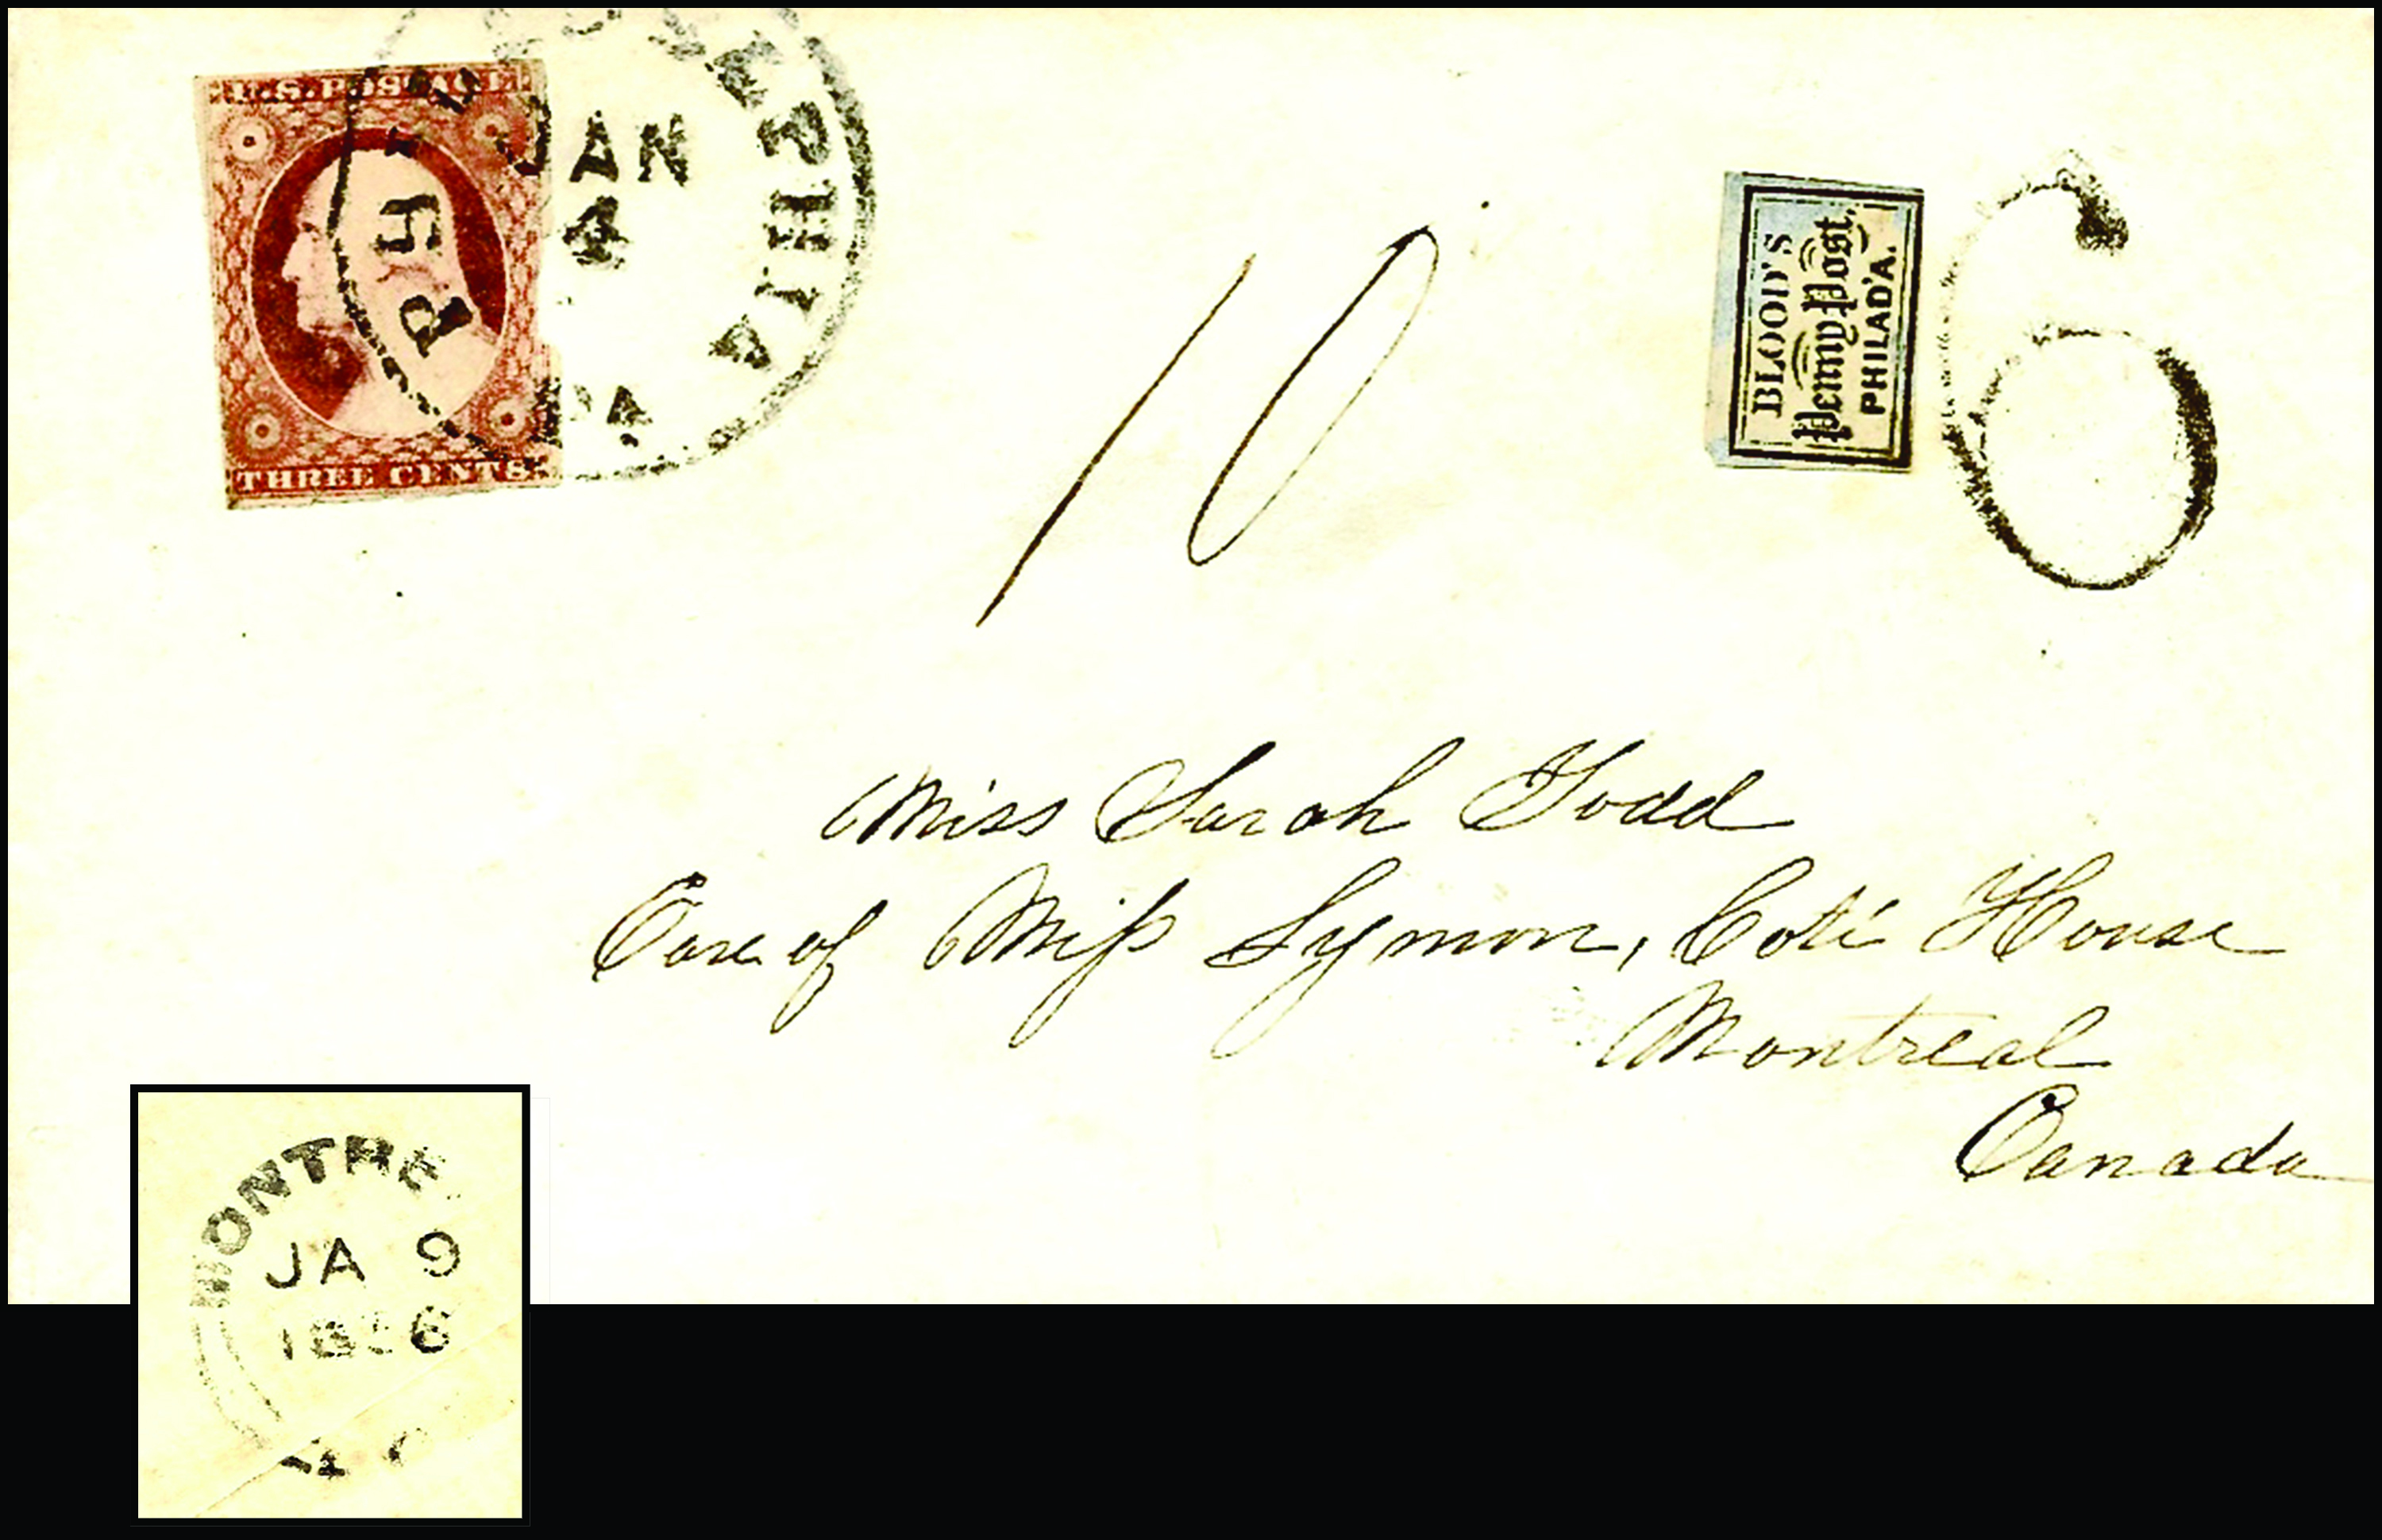 U.S. POSTAGE
THREE CENTS.
JAN
4
PA
10
BLOOD'S
Penny Post,
PHILAD'A.
6
Miss Sarah Todd
Care of Miss Lymon, Coté House
Montreal
Canada
MONTRE
JA 9
1856